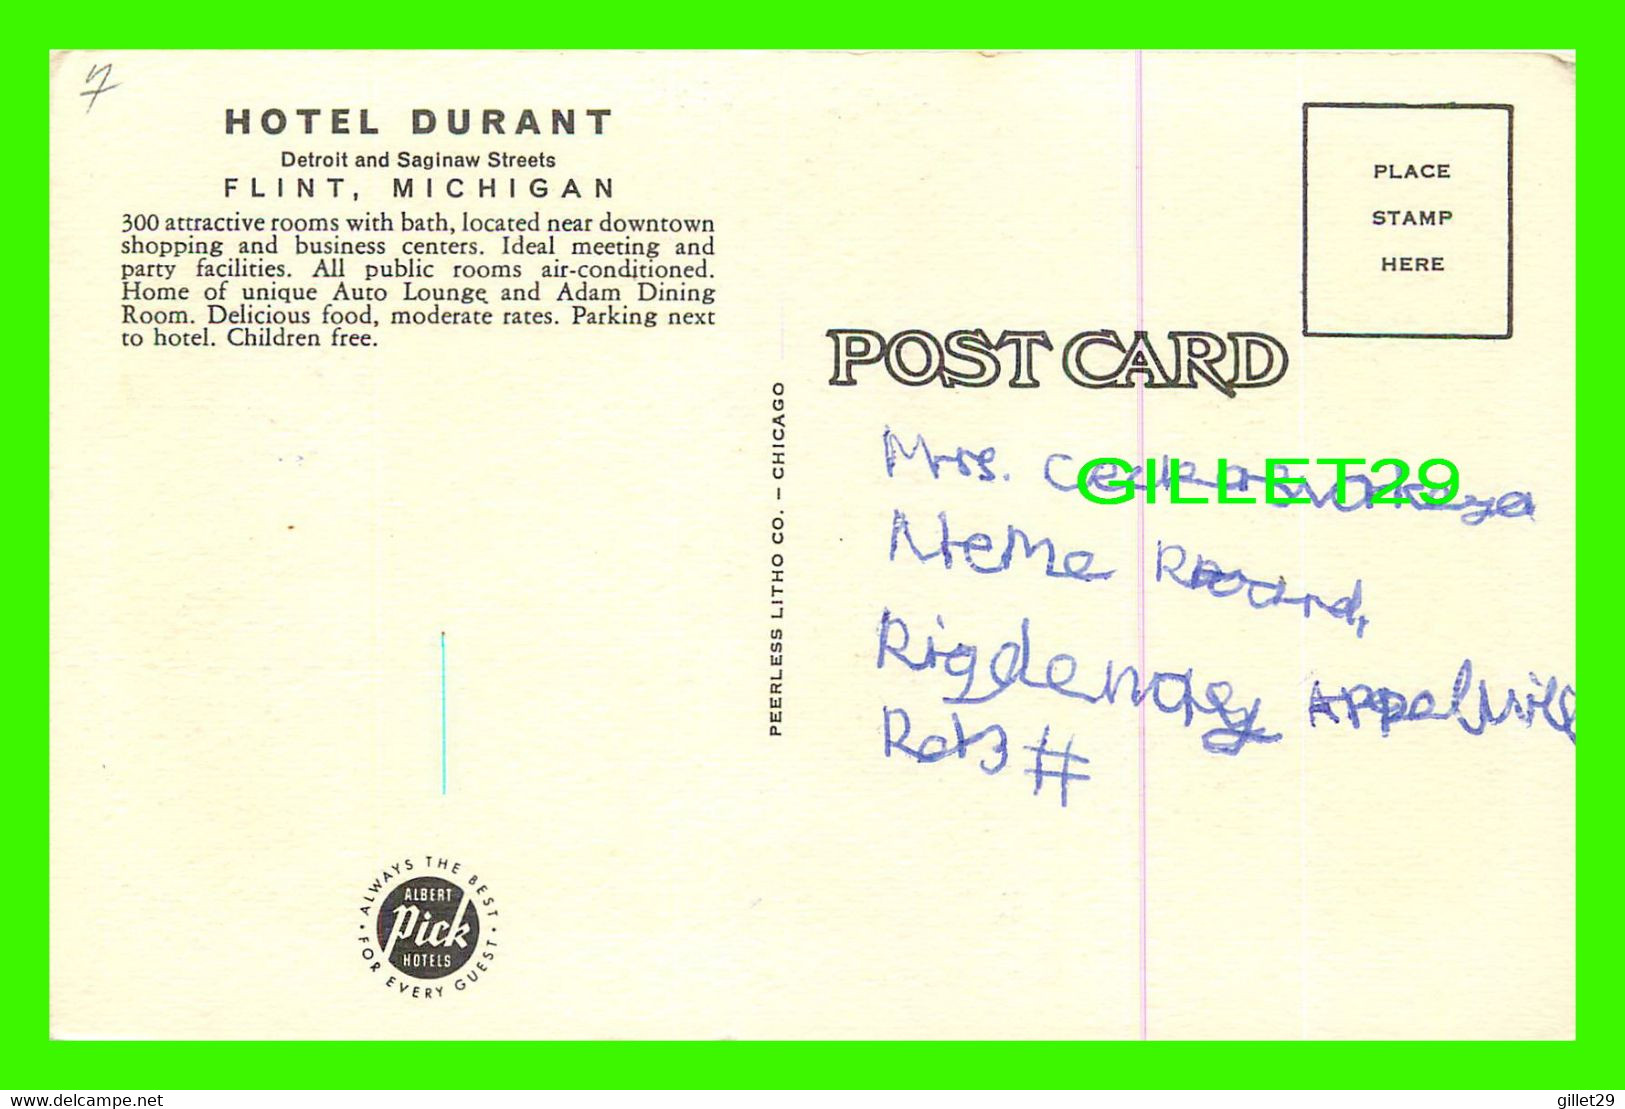 7
HOTEL DURANT
Detroit and Saginaw Streets
FLINT, MICHIGAN
300 attractive rooms with bath, located near downtown
shopping and business centers. Ideal meeting and
party facilities. All public rooms air-conditioned.
Home of unique Auto Lounge and Adam Dining
Room. Delicious food, moderate rates. Parking next
to hotel. Children free.
ALWAYS THE BEST
ALBERT
Pick
HOTELS
FOR EVERY GUEST
PEERLESS LITHO CO. – CHICAGO
PLACE
STAMP
HERE
POST CARD
Mrs.
GILLET29
#
www.delcampe.net
gillet29